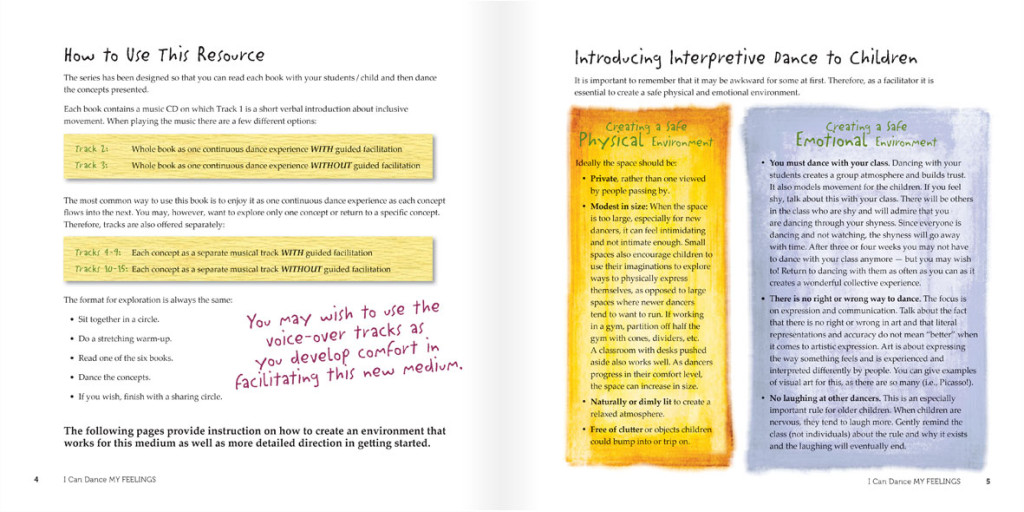 How to Use This Resource
The series has been designed so that you can read each book with your students / child and then dance
the concepts presented.
Each book contains a music CD on which Track 1 is a short verbal introduction about inclusive
movement. When playing the music there are a few different options:
Track 2: Whole book as one continuous dance experience WITH guided facilitation
Track 3: Whole book as one continuous dance experience WITHOUT guided facilitation
The most common way to use this book is to enjoy it as one continuous dance experience as each concept
flows into the next. You may, however, want to explore only one concept or return to a specific concept.
Therefore, tracks are also offered separately:
Tracks 4-9: Each concept as a separate musical track WITH guided facilitation
Tracks 10-15: Each concept as a separate musical track WITHOUT guided facilitation
The format for exploration is always the same:
• Sit together in a circle.
• Do a stretching warm-up.
• Read one of the six books.
• Dance the concepts.
• If you wish, finish with a sharing circle.
You may wish to use the
voice-over tracks as
you develop comfort in
facilitating this new medium.
The following pages provide instruction on how to create an environment that
works for this medium as well as more detailed direction in getting started.
4 I Can Dance MY FEELINGS
Introducing Interpretive Dance to Children
It is important to remember that it may be awkward for some at first. Therefore, as a facilitator it is
essential to create a safe physical and emotional environment.
Creating a Safe
Physical Environment
Ideally the space should be:
• Private, rather than one viewed
by people passing by.
• Modest in size: When the space
is too large, especially for new
dancers, it can feel intimidating
and not intimate enough. Small
spaces also encourage children to
use their imaginations to explore
ways to physically express
themselves, as opposed to large
spaces where newer dancers
tend to want to run. If working
in a gym, partition off half the
gym with cones, dividers, etc.
A classroom with desks pushed
aside also works well. As dancers
progress in their comfort level,
the space can increase in size.
• Naturally or dimly lit to create a
relaxed atmosphere.
• Free of clutter or objects children
could bump into or trip on.
Creating a Safe
Emotional Environment
• You must dance with your class. Dancing with your
students creates a group atmosphere and builds trust.
It also models movement for the children. If you feel
shy, talk about this with your class. There will be others
in the class who are shy and will admire that you
are dancing through your shyness. Since everyone is
dancing and not watching, the shyness will go away
with time. After three or four weeks you may not have
to dance with your class anymore — but you may wish
to! Return to dancing with them as often as you can as it
creates a wonderful collective experience.
• There is no right or wrong way to dance. The focus is
on expression and communication. Talk about the fact
that there is no right or wrong in art and that literal
representations and accuracy do not mean "better" when
it comes to artistic expression. Art is about expressing
the way something feels and is experienced and
interpreted differently by people. You can give examples
of visual art for this, as there are so many (i.e., Picasso!).
• No laughing at other dancers. This is an especially
important rule for older children. When children are
nervous, they tend to laugh more. Gently remind the
class (not individuals) about the rule and why it exists
and the laughing will eventually end.
I Can Dance MY FEELINGS 5